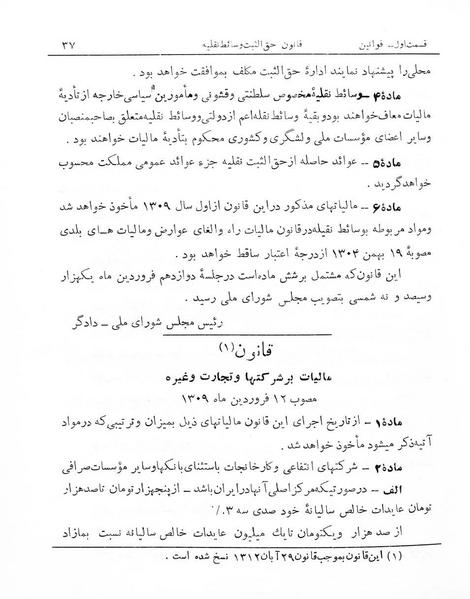 قسمت اول ــ قوانین
قانون حق الثبت وسائط نقلیه
۳۷
محلی را پیشنهاد نمایند ادارهٔ حق الثبت مکلف بموافقت خواهد بود .
مادهٔ ۴ ــ وسائط نقلیهٔ مخصوص سلطنتی وقشونی ومأمورین سیاسی خارجه از تأدیهٔ
مالیات معاف خواهند بود و بقیهٔ وسائط نقلیه اعم از دولتی ووسائط نقلیه متعلق بصاحبمنصبان
وسایر اعضای مؤسسات ملی ولشگری وکشوری محکوم بتأدیهٔ مالیات خواهند بود .
مادهٔ ۵ ــ عوائد حاصله از حق الثبت نقلیه جزء عوائد عمومی مملکت محسوب
خواهد گردید .
مادهٔ ۶ ــ مالیاتهای مذکور در این قانون از اول سال ۱۳۰۹ مأخوذ خواهد شد
ومواد مربوطه بوسائط نقیله در قانون مالیات راه والغای عوارض ومالیات های بلدی
مصوبهٔ ۱۹ بهمن ۱۳۰۴ از درجهٔ اعتبار ساقط خواهد بود .
این قانون که مشتمل برشش ماده است در جلسهٔ دوازدهم فروردین ماه یکهزار
وسیصد و نه شمسی بتصویب مجلس شورای ملی رسید .
رئیس مجلس شورای ملی ــ دادگر
قانون (۱)
مالیات بر شرکتها و تجارت وغیره
مصوب ۱۲ فروردین ماه ۱۳۰۹
مادهٔ ۱ ــ از تاریخ اجرای این قانون مالیاتهای ذیل بمیزان وترتیبی که در مواد
آتیه ذکر میشود مأخوذ خواهد شد .
مادهٔ ۲ ــ شرکتهای انتفاعی وکارخانجات باستثنای بانکها وسایر مؤسسات صرافی
الف ــ در صورتیکه مرکز اصلی آنها در ایران باشد ــ از پنجهزار تومان تا صد هزار
تومان عایدات خالص سالیانهٔ خود صدی سه ۳٪
از صد هزار ویکتومان تا یك میلیون عایدات خالص سالیانه نسبت بمازاد
(۱) این قانون بموجب قانون ۲۹ آبان ۱۳۱۲ نسخ شده است .